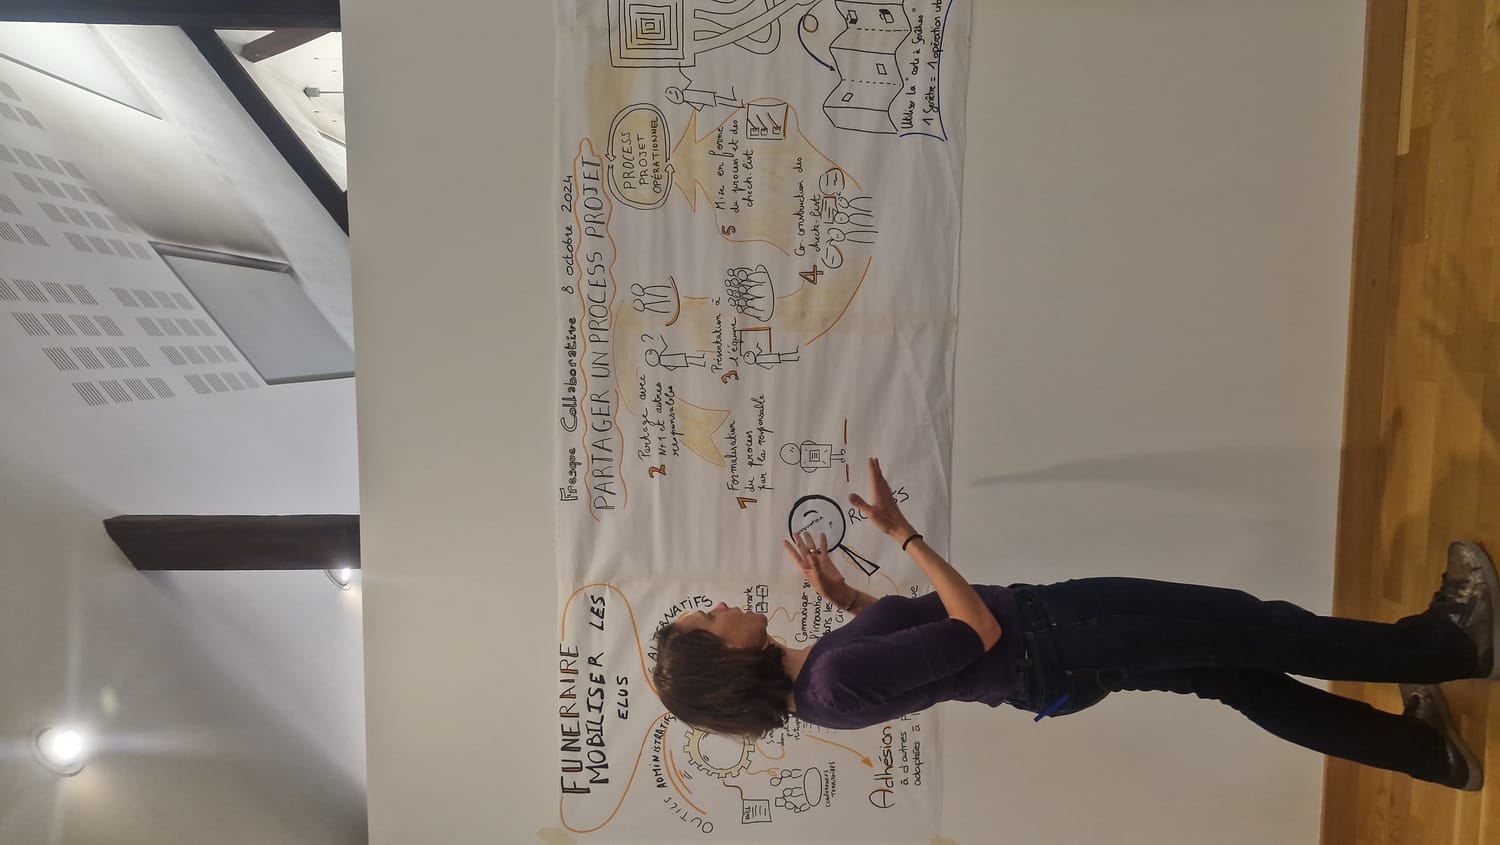 FUNERAIRE
MOBILISER LES
ELUS
OUTILS ADMINISTRATIFS
ALTERNATIFS
CONFÉRENCES
TERRITOIRES
Communiquer
l'innovation
dans les
Adhésion
à d'autres
adaptées à
Fresque Collaborative 8 octobre 2024
PARTAGER UN PROCESS PROJET
1 Formalisation
du process
par le responsable
2 Partage avec
N+1 et autres
responsables
?
3 Présentation à
l'équipe
4 Co-construction des
check-list
5 Mise en forme
du process et des
check-list
PROCESS
PROJET
OPÉRATIONNEL
Utiliser la "carte à fenêtres"
1 fenêtre = 1 opération